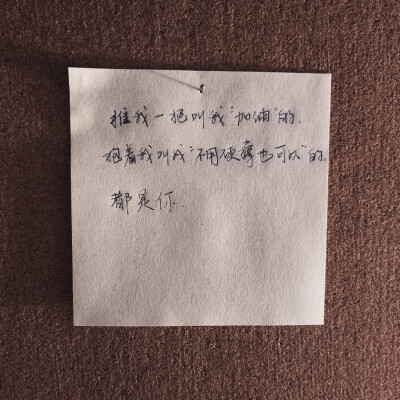 推我一把叫我“加油”的.
抱着我叫我“不用硬撑也可以”的.
都是你.